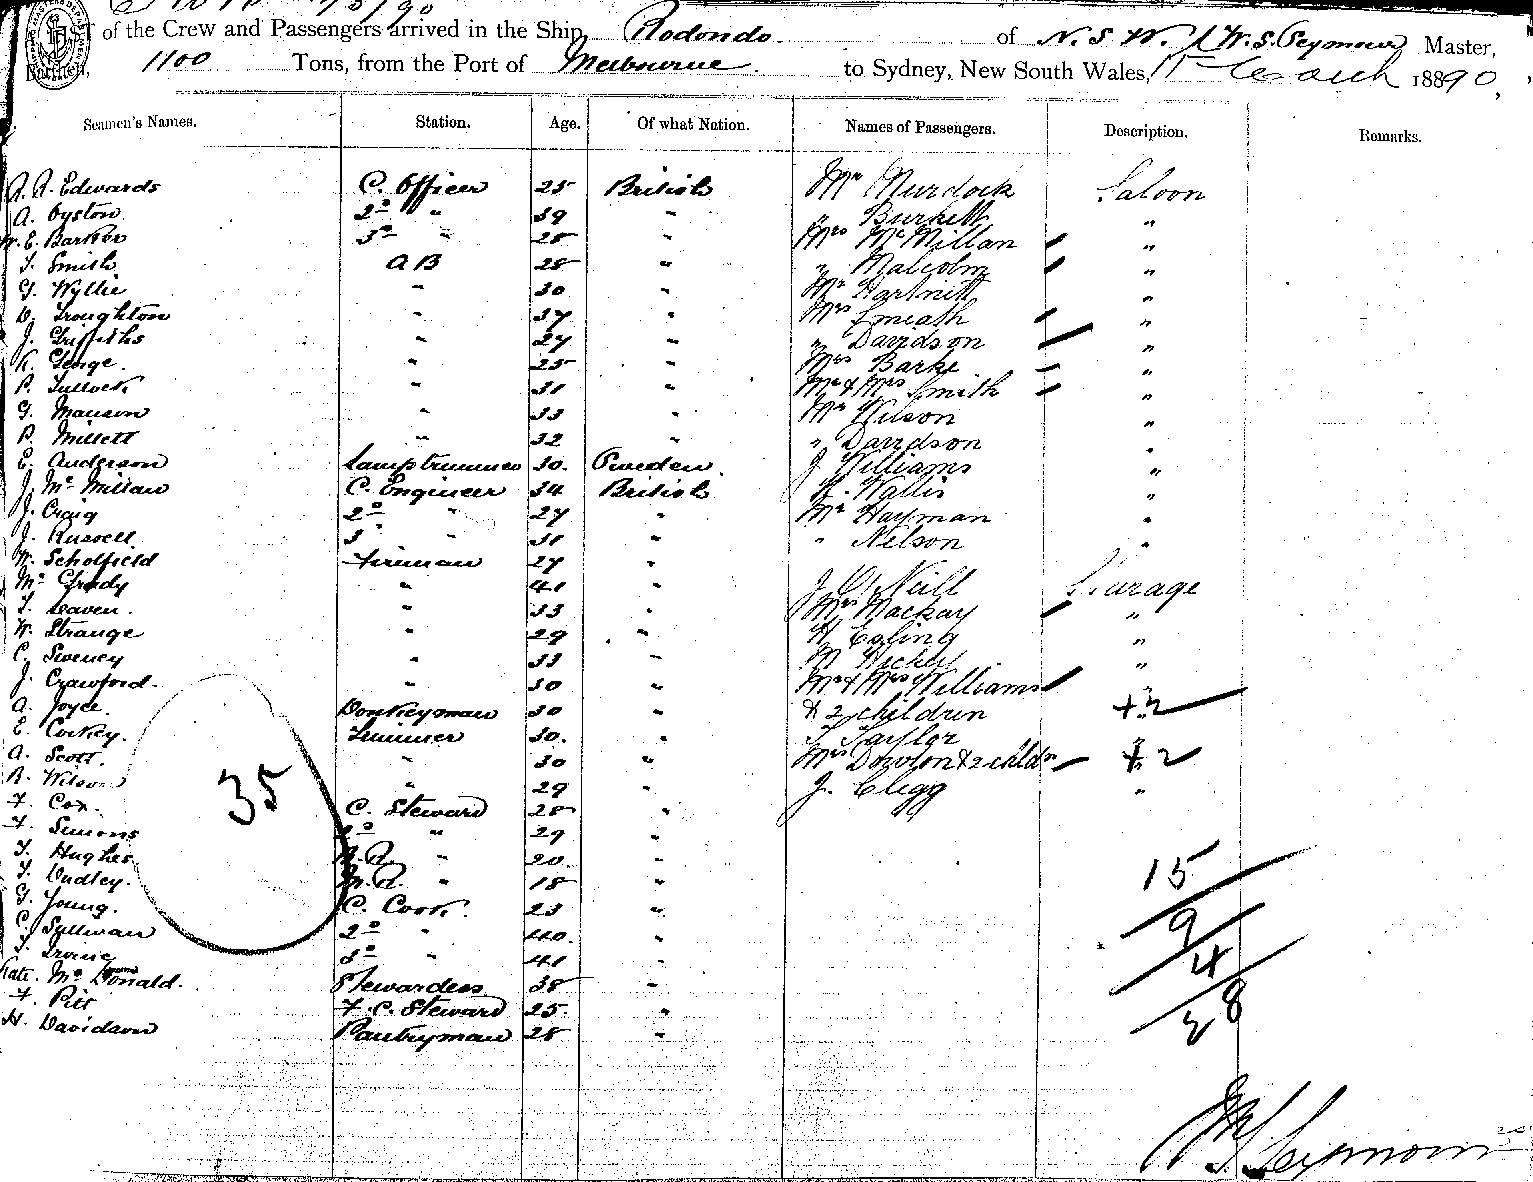 of the Crew and Passengers arrived in the Ship Rodondo of N. S. W. W. S. Seymour Master,
Burthen, 1100 Tons, from the Port of Melbourne to Sydney, New South Wales, March 1890.
Seamen's Names. Station. Age. Of what Nation. Names of Passengers. Description. Remarks.
A. A. Edwards C. Officer 25 British Mr Murdock Saloon
A. Oyston 2nd " 39 " " Burkett "
W. E. Barker 3rd " 28 " Mrs McMillan "
T. Smith A B 28 " " Malcolm "
G. Wyllie " 30 " Mr Hartnett "
D. Troughton " 37 " Mrs Smeath "
J. Griffiths " 27 " " Davidson "
K. George " 25 " Mrs Barke "
P. Tullock " 31 " Mr & Mrs Smith "
G. Manson " 33 " Mr Wilson "
P. Millett " 32 " " Davidson "
E. Anderson Lamptrimmer 30. Sweden. J Williams "
J. Mc Millan C. Engineer 34 British Wallis "
J. Craig 2nd " 27 " Mr Hayman "
J. Russell 3 " 31 " " Nelson "
W. Scholfield Fireman 27 "
Mc Grady " 41 " J O'Neill Steerage
T. Leaven. " 33 " Mrs Mackay "
W. Strange " 29 " H Esling "
C. Sweney " 33 " M Hickey "
J. Crawford. " 30 " Mr & Mrs Williams
A. Joyce Donkeyman 30 " & 2 children +2
E. Corkey. Trimmer 30. " T Taylor "
A. Scott. " 30 " Mrs Dowlon & 2 childn +2
R. Wilson " 29 " J. Clegg "
F. Cox. C. Steward 28 "
F. Simons 2nd " 29 "
35
T. Hughes. " 20 "
T. Dudley. " 18 "
G. Young. C. Cook. 23 "
C. Sullivan 2nd " 40. "
T. Irvine 3rd " 41 "
Kate. Mc Donald. Stewardess 38 "
F. Pitt F. C. Steward 25. "
H. Davidson Pantryman 28 "
15
9
4
28
Seymour